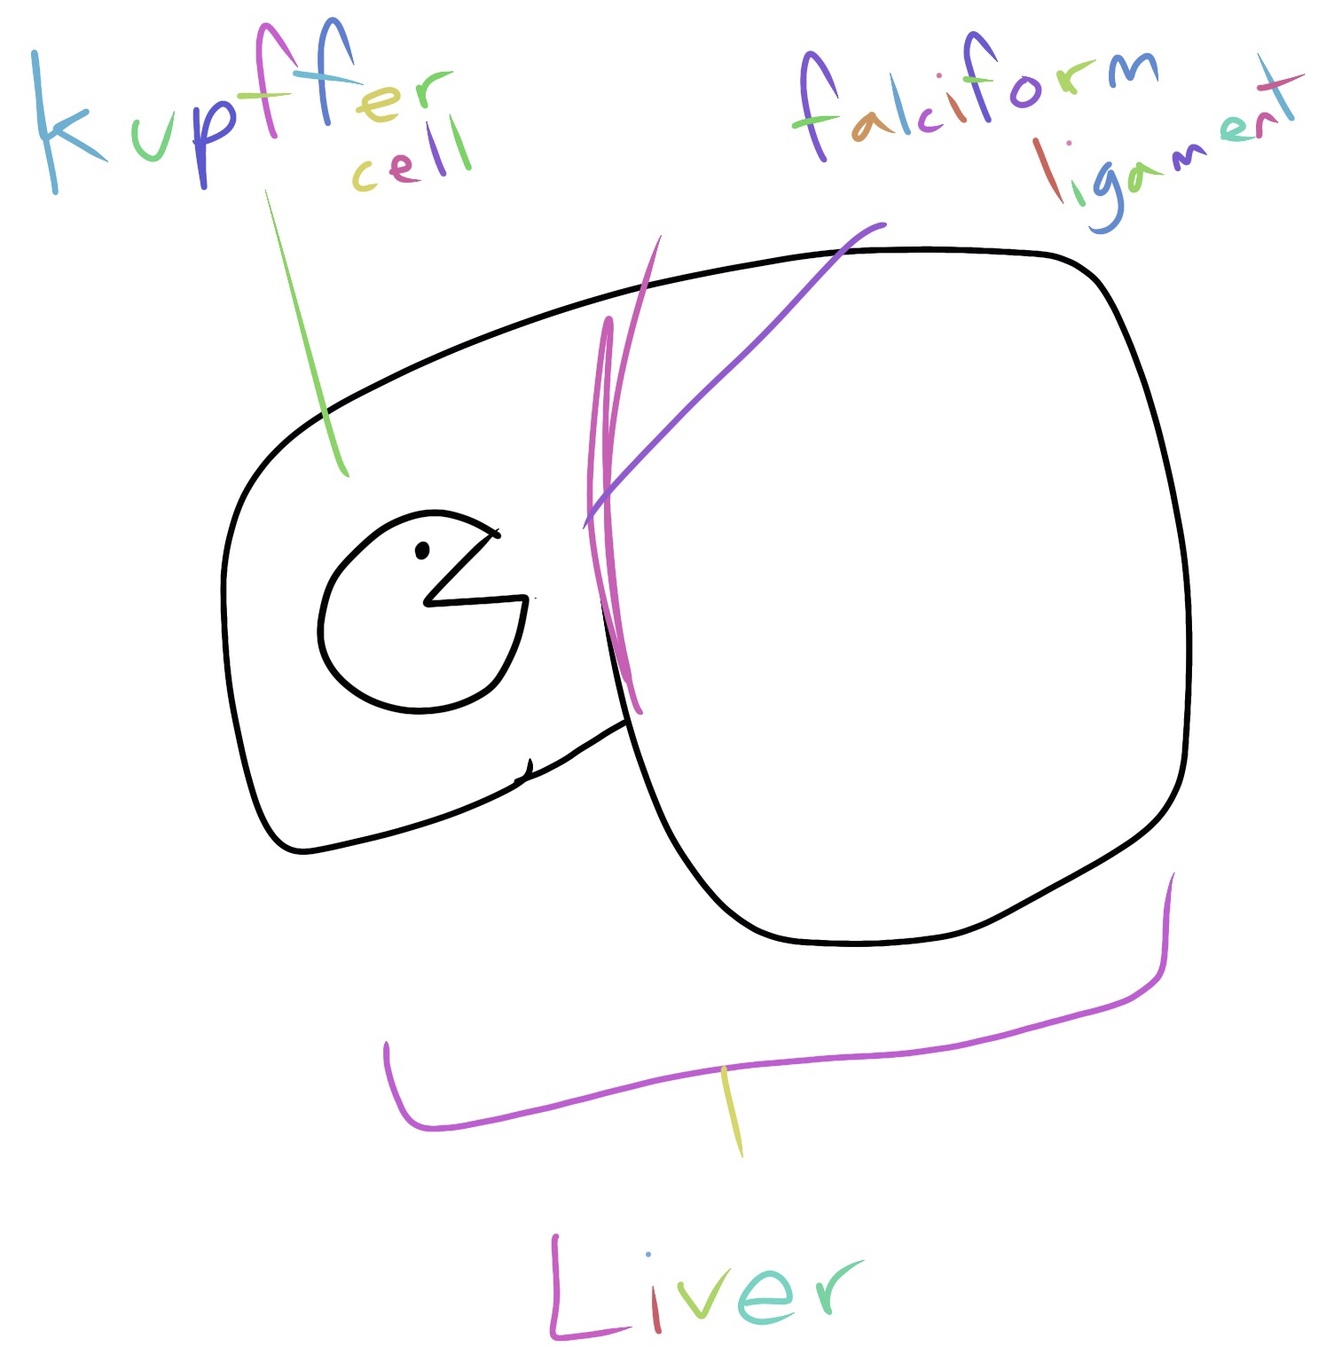 kupffer
cell
falciform
ligament
Liver